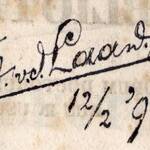 v.d. Laan
12/2 '9